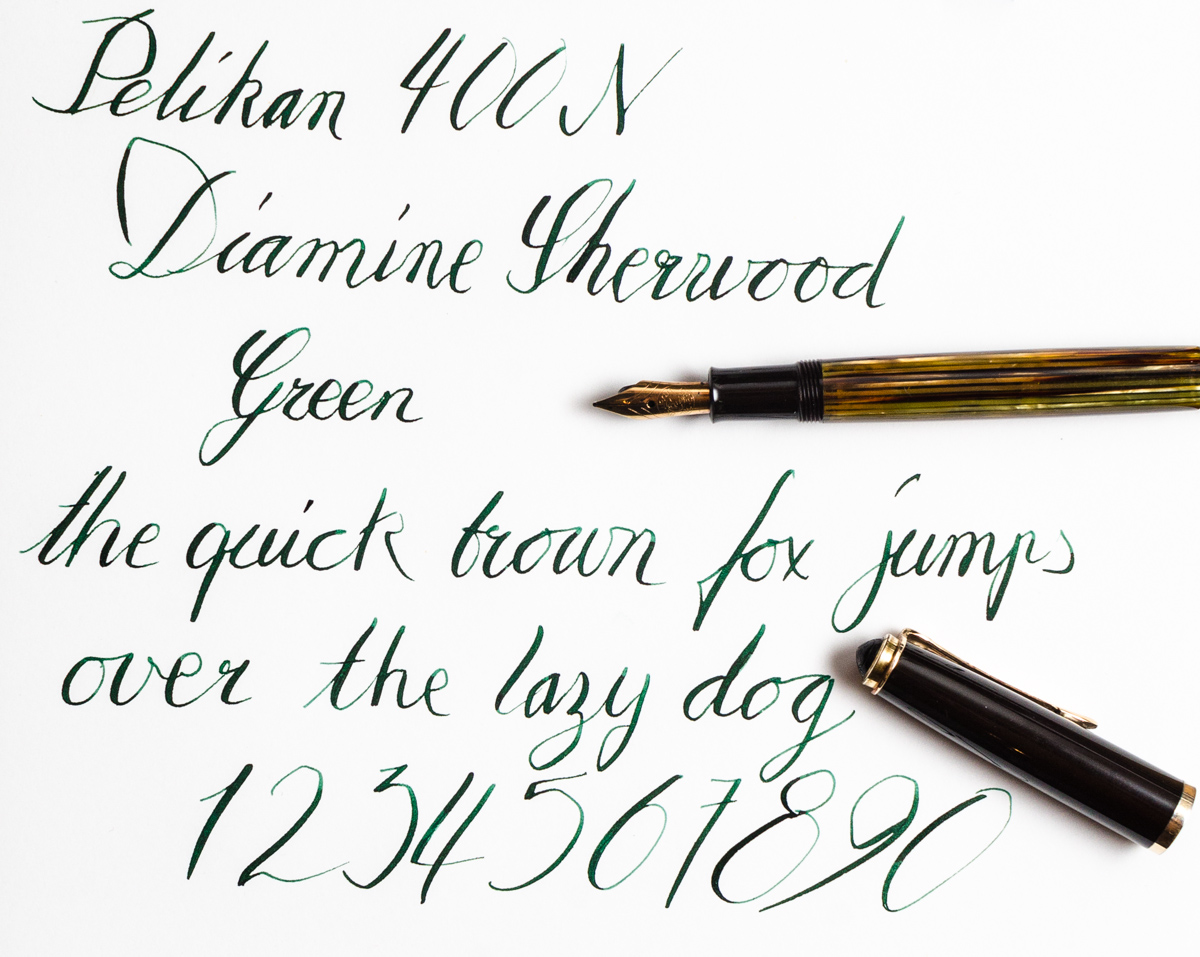 Pelikan 400N
Diamine Sherwood
Green
the quick brown fox jumps
over the lazy dog
1234567890